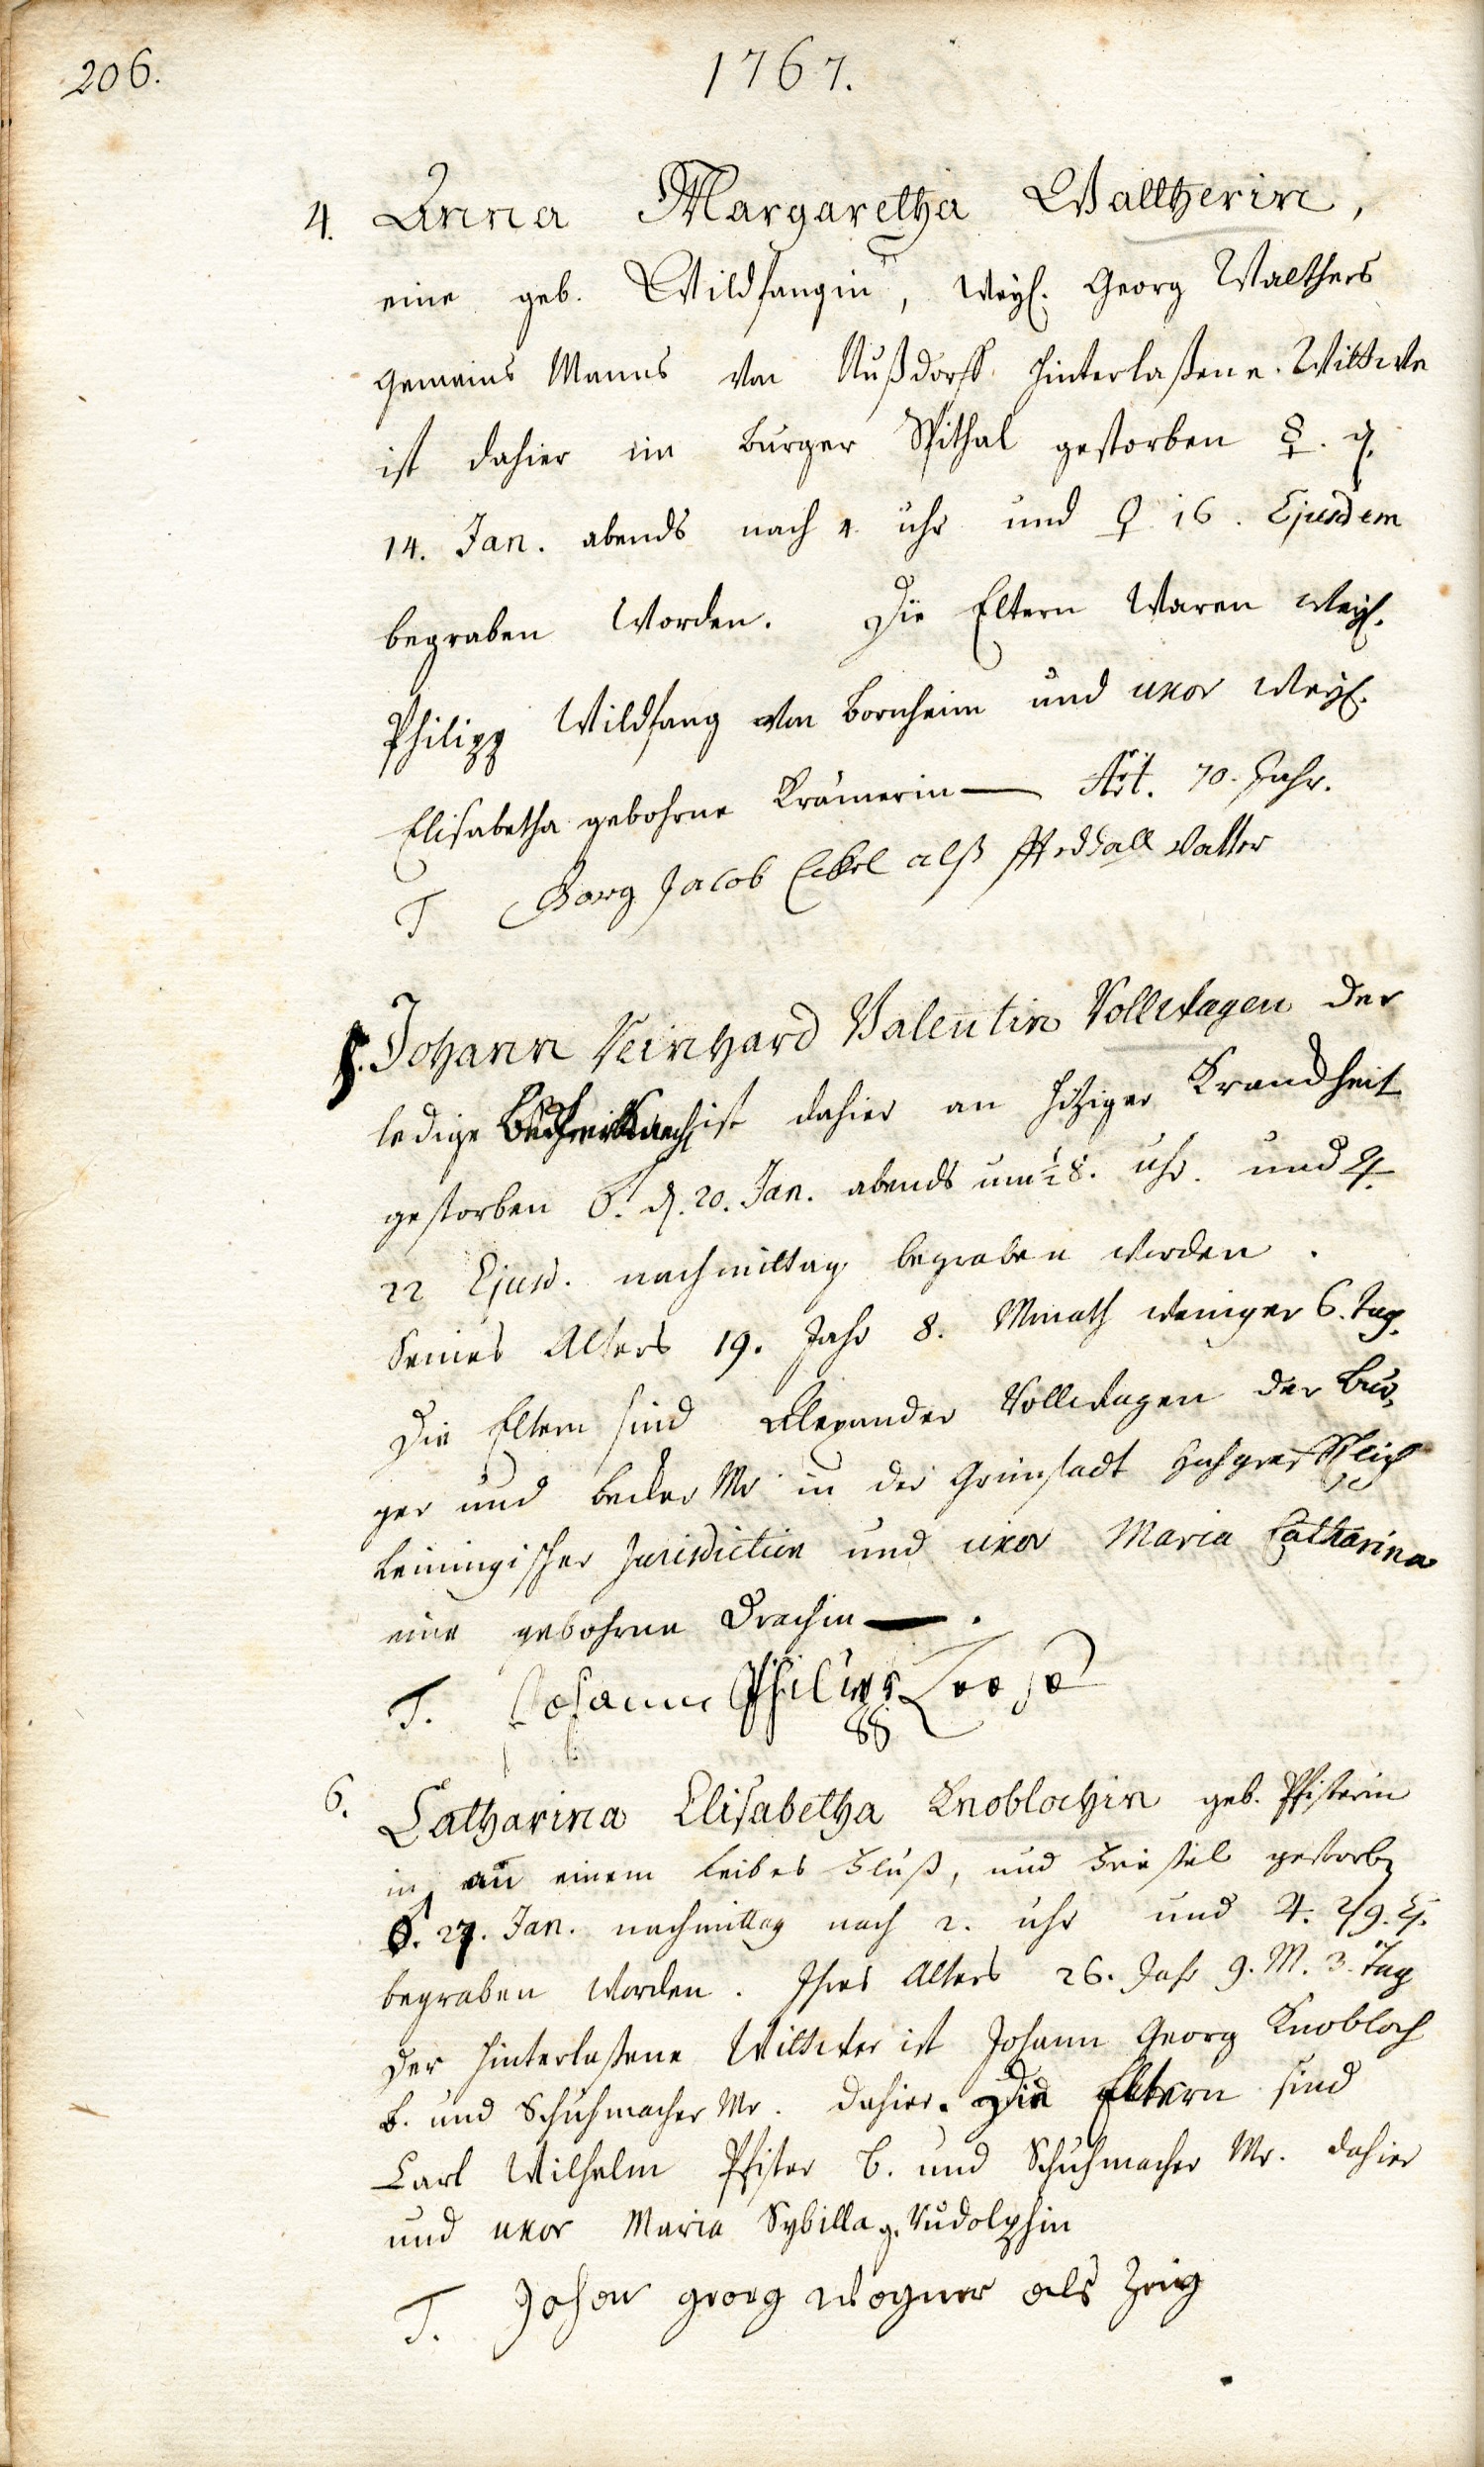 206.
1767.
4. Anna Margaretha Waltherin,
eine geb. Wildfangin, weyl. Georg Walthers
gemeins Manns von Nußdorff hinterlaßene Wittwe
ist dahier im Burger Spithal gestorben ☿. d.
14. Jan. abends nach 4 uhr und ♀ 16. Ejusdem
begraben worden. Die Eltern waren weyl.
Philipp Wildfang von Bornheim und uxor weyl.
Elisabetha gebohrne Krämerin — Aet. 70. Jahr.
T Georg Jacob Eckel alß Vatter
5. Johann Reinhard Valentin Vollewagen der
ledige ist dahier an hitziger Kranckheit
gestorben ♂. d. 20. Jan. abends um ½ 8. uhr. und ♃
22 Ejusd. nachmittag begraben worden.
Seines Alters 19. Jahr 8. Monath weniger 6. Tag.
Die Eltern sind Alexander Vollewagen der Bur-
ger und Becker Mr in der Grünstadt Hochgräfflich
Leiningischer Jurisdiction und uxor Maria Catharina
eine gebohrne Drachin —.
T. Johann Philipp Loose
6. Catharina Elisabetha Knoblochin geb. Pfisterin
ist an einem Leibes Fluß, und Frießel gestorben
♂. 27. Jan. nachmittag nach 2. uhr und ♃. 29. Ej.
begraben worden. Ihres Alters 26. Jahr 9. M. 3. Tag
Der hinterlaßene Wittwer ist Johann Georg Knobloch
B. und Schuhmacher Mr. dahier. Die Eltern sind
Carl Wilhelm Pfister B. und Schuhmacher Mr. dahier
und uxor Maria Sybilla g. Rudolphin
T. Johan georg Wagner als Zeig